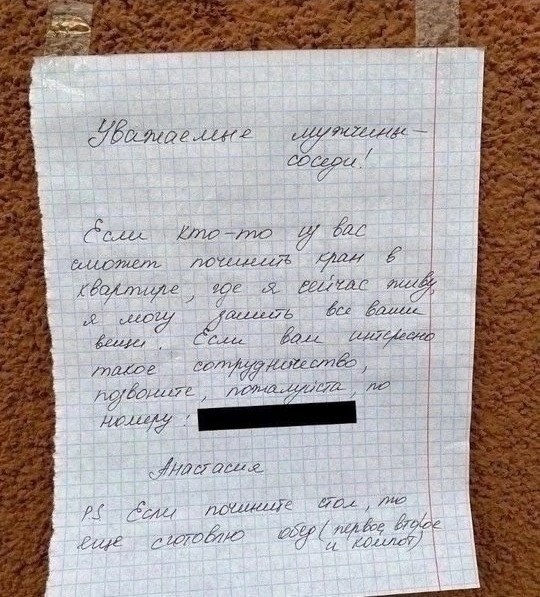 Уважаемые мужчины-
соседи!
Если кто-то из вас
сможет починить кран в
квартире, где я сейчас живу,
я могу зашить все ваши
вещи. Если вам интересно
такое сотрудничество,
позвоните, пожалуйста, по
номеру:
Анастасия
P.S Если почините стол, то
еще сготовлю обед (первое, второе
и компот)